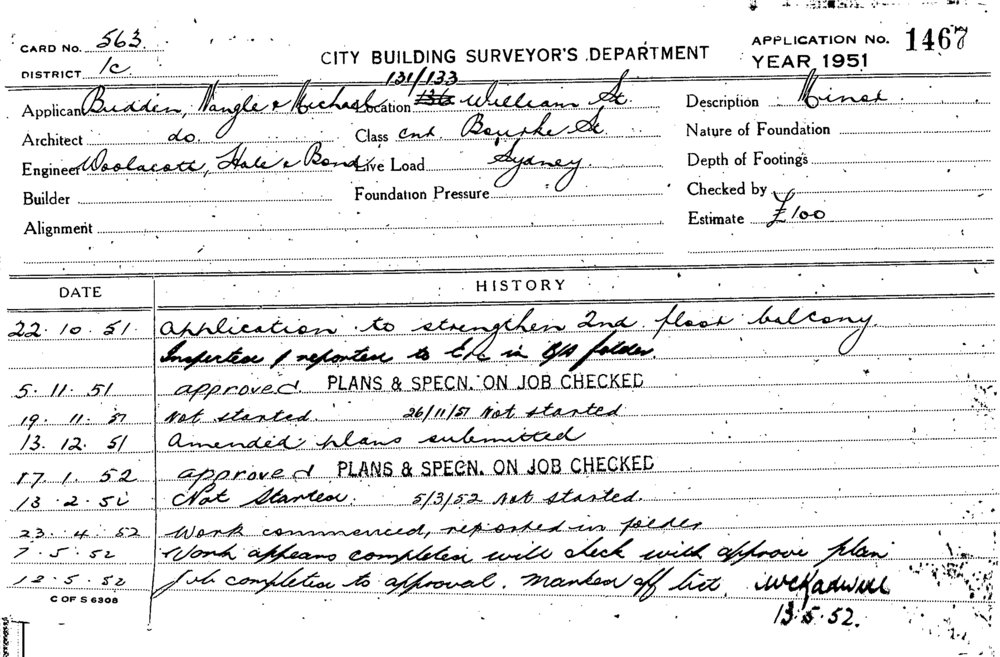 CARD No. 563
DISTRICT 1c
CITY BUILDING SURVEYOR'S DEPARTMENT
APPLICATION No. 1467
YEAR 1951
131/133
Applicant Budden, Nangle & Michael Location 136 William St.
Description Minor
Architect do. Class cnr Bourke St.
Nature of Foundation
Engineer Woolacott, Hale & Bond Live Load Sydney.
Depth of Footings
Builder
Foundation Pressure
Checked by
Alignment
Estimate £100
DATE HISTORY
22. 10. 51. Application to strengthen 2nd. floor balcony.
Inspected & reported to in folder
5. 11. 51 approved PLANS & SPECN. ON JOB CHECKED
19. 11. 51 Not started. 26/11/51 Not started
13. 12. 51 Amended plans submitted
17. 1. 52 approved PLANS & SPECN. ON JOB CHECKED
13. 2. 52 Not Started. 5/3/52 Not started.
23. 4. 52 Work commenced, reported in folder
7. 5. 52 Work appears completed will check with approve plan
12. 5. 52 Job completed to approval. Marked off list.
C OF S 6308
13. 5. 52.